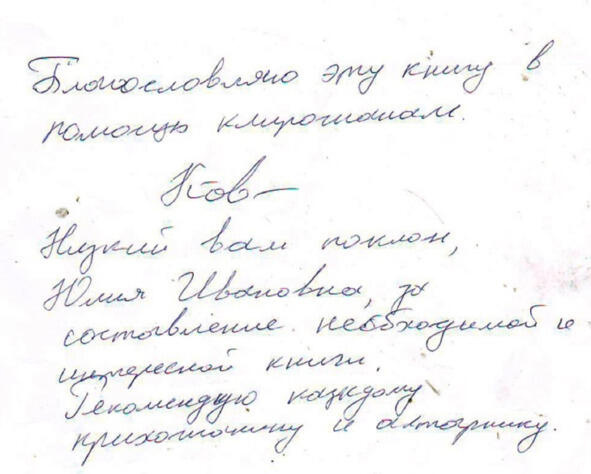 Благословляю эту книгу в
помощь клирошанам.
Низкий вам поклон,
Юлия Ивановна, за
составление необходимой и
интересной книги.
Рекомендую каждому
прихожанину и алтарнику.